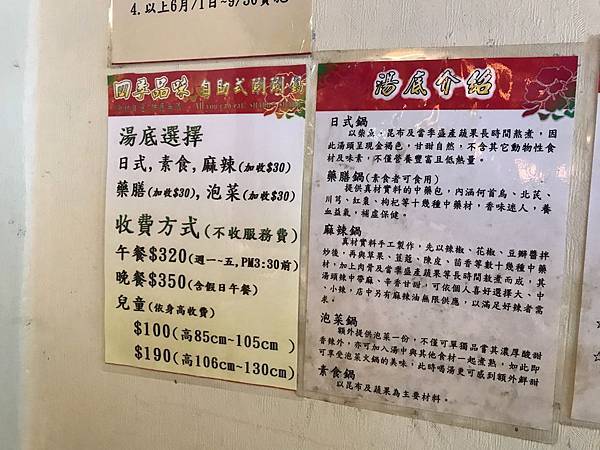 4. 以上6月/1日~9/30實施
四季品味 自助式涮涮鍋
湯底選擇
日式,素食,麻辣(加收$30)
藥膳(加收$30),泡菜(加收$30)
收費方式(不收服務費)
午餐$320(週一~五,PM3:30前)
晚餐$350(含假日午餐)
兒童(依身高收費)
$100(高85cm~105cm )
$190(高106cm~130cm)
湯底介紹
日式鍋
以柴魚、昆布及當季盛產蔬果長時間熬煮,因
此湯頭呈現金褐色,甘甜自然,不含其它動物性食
材及味素,不僅營養豐富且低熱量。
藥膳鍋(素食者可食用)
提供真材實料的中藥包,內涵何首烏、北芪、
川芎、紅棗、枸杞等十幾種中藥材,香味迷人,養
血益氣,補虛保健。
麻辣鍋
真材實料手工製作,先以辣椒、花椒、豆瓣醬拌
炒後,再與草果、荳蔻、陳皮、茴香等數十幾種中藥
材,加上肉骨及當季盛產蔬果等長時間熬煮而成,其
湯頭辣中帶麻、辛香甘甜,可依個人喜好選擇大、中
、小辣,店中另有麻辣油無限供應,以滿足好辣者需
求。
泡菜鍋
額外提供泡菜一份,不僅可單獨品嘗其濃厚酸甜
香辣外,亦可加入湯中與其他食材一起煮熟,如此即
可享受泡菜火鍋的美味,此時喝湯更可感到額外鮮甜
素食鍋
以昆布及蔬果為主要材料。